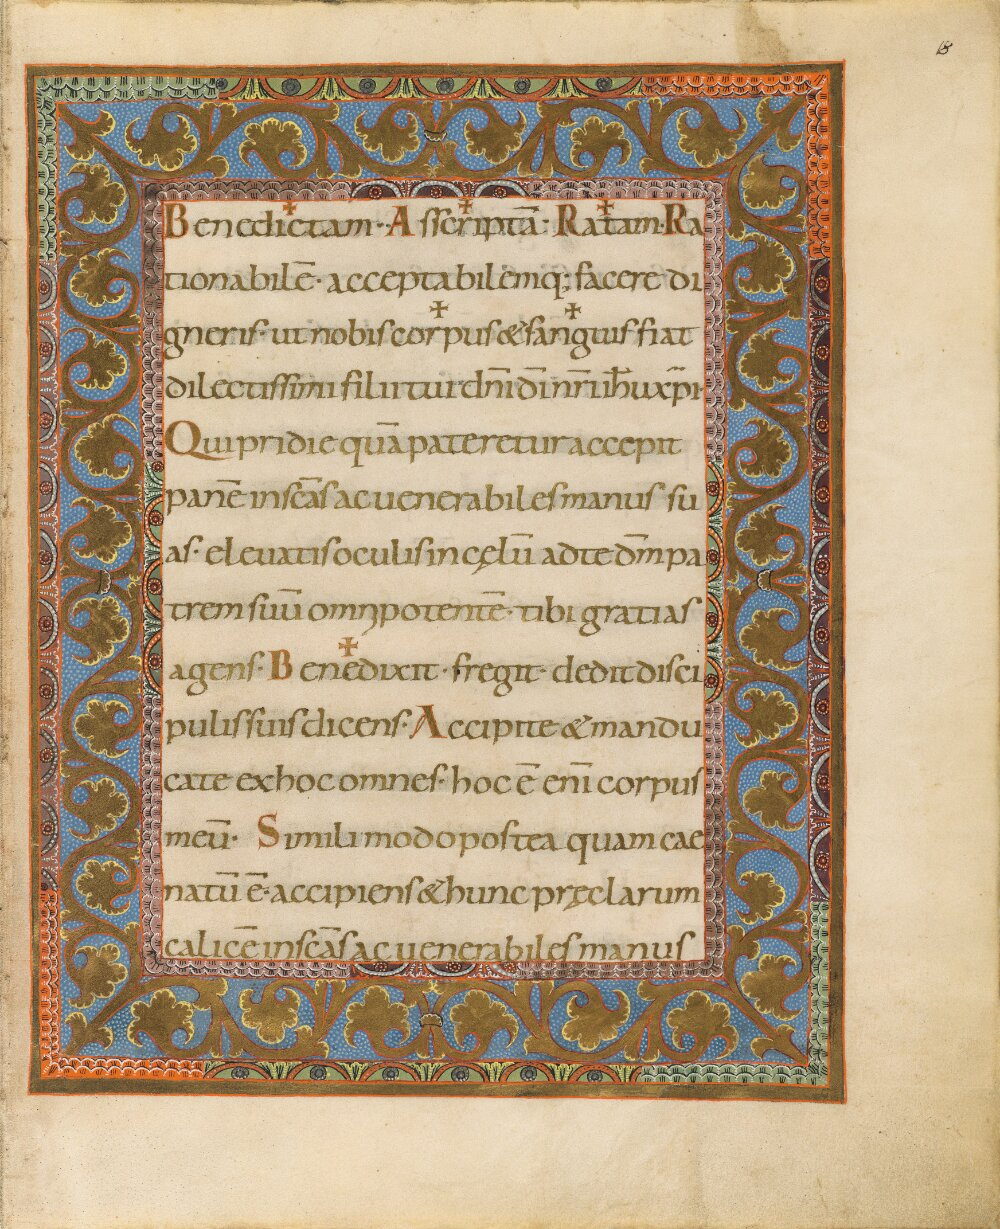 18
Benedictam· Ascriptā· Ratam· Ra
tionabilē· acceptabilemq; facere di
gneris· ut nobis corpus & sanguis fiat
dilectissimi filii tui dn̄i dī nr̄i ih̄u xp̄i·
Qui pridie quā pateretur accepit
panē in sc̄as ac uenerabiles manus su
as· eleuatis oculis in cęlū ad te dm̄ pa
trem suū omnipotentē· tibi gratias
agens· Benedixit· fregit· dedit disci
pulis suis dicens· Accipite & mandu
cate ex hoc omnes· hoc ē enī corpus
meū· Simili modo postea quam cae
natū ē· accipiens & hunc pręclarum
calicē in sc̄as ac uenerabiles manus